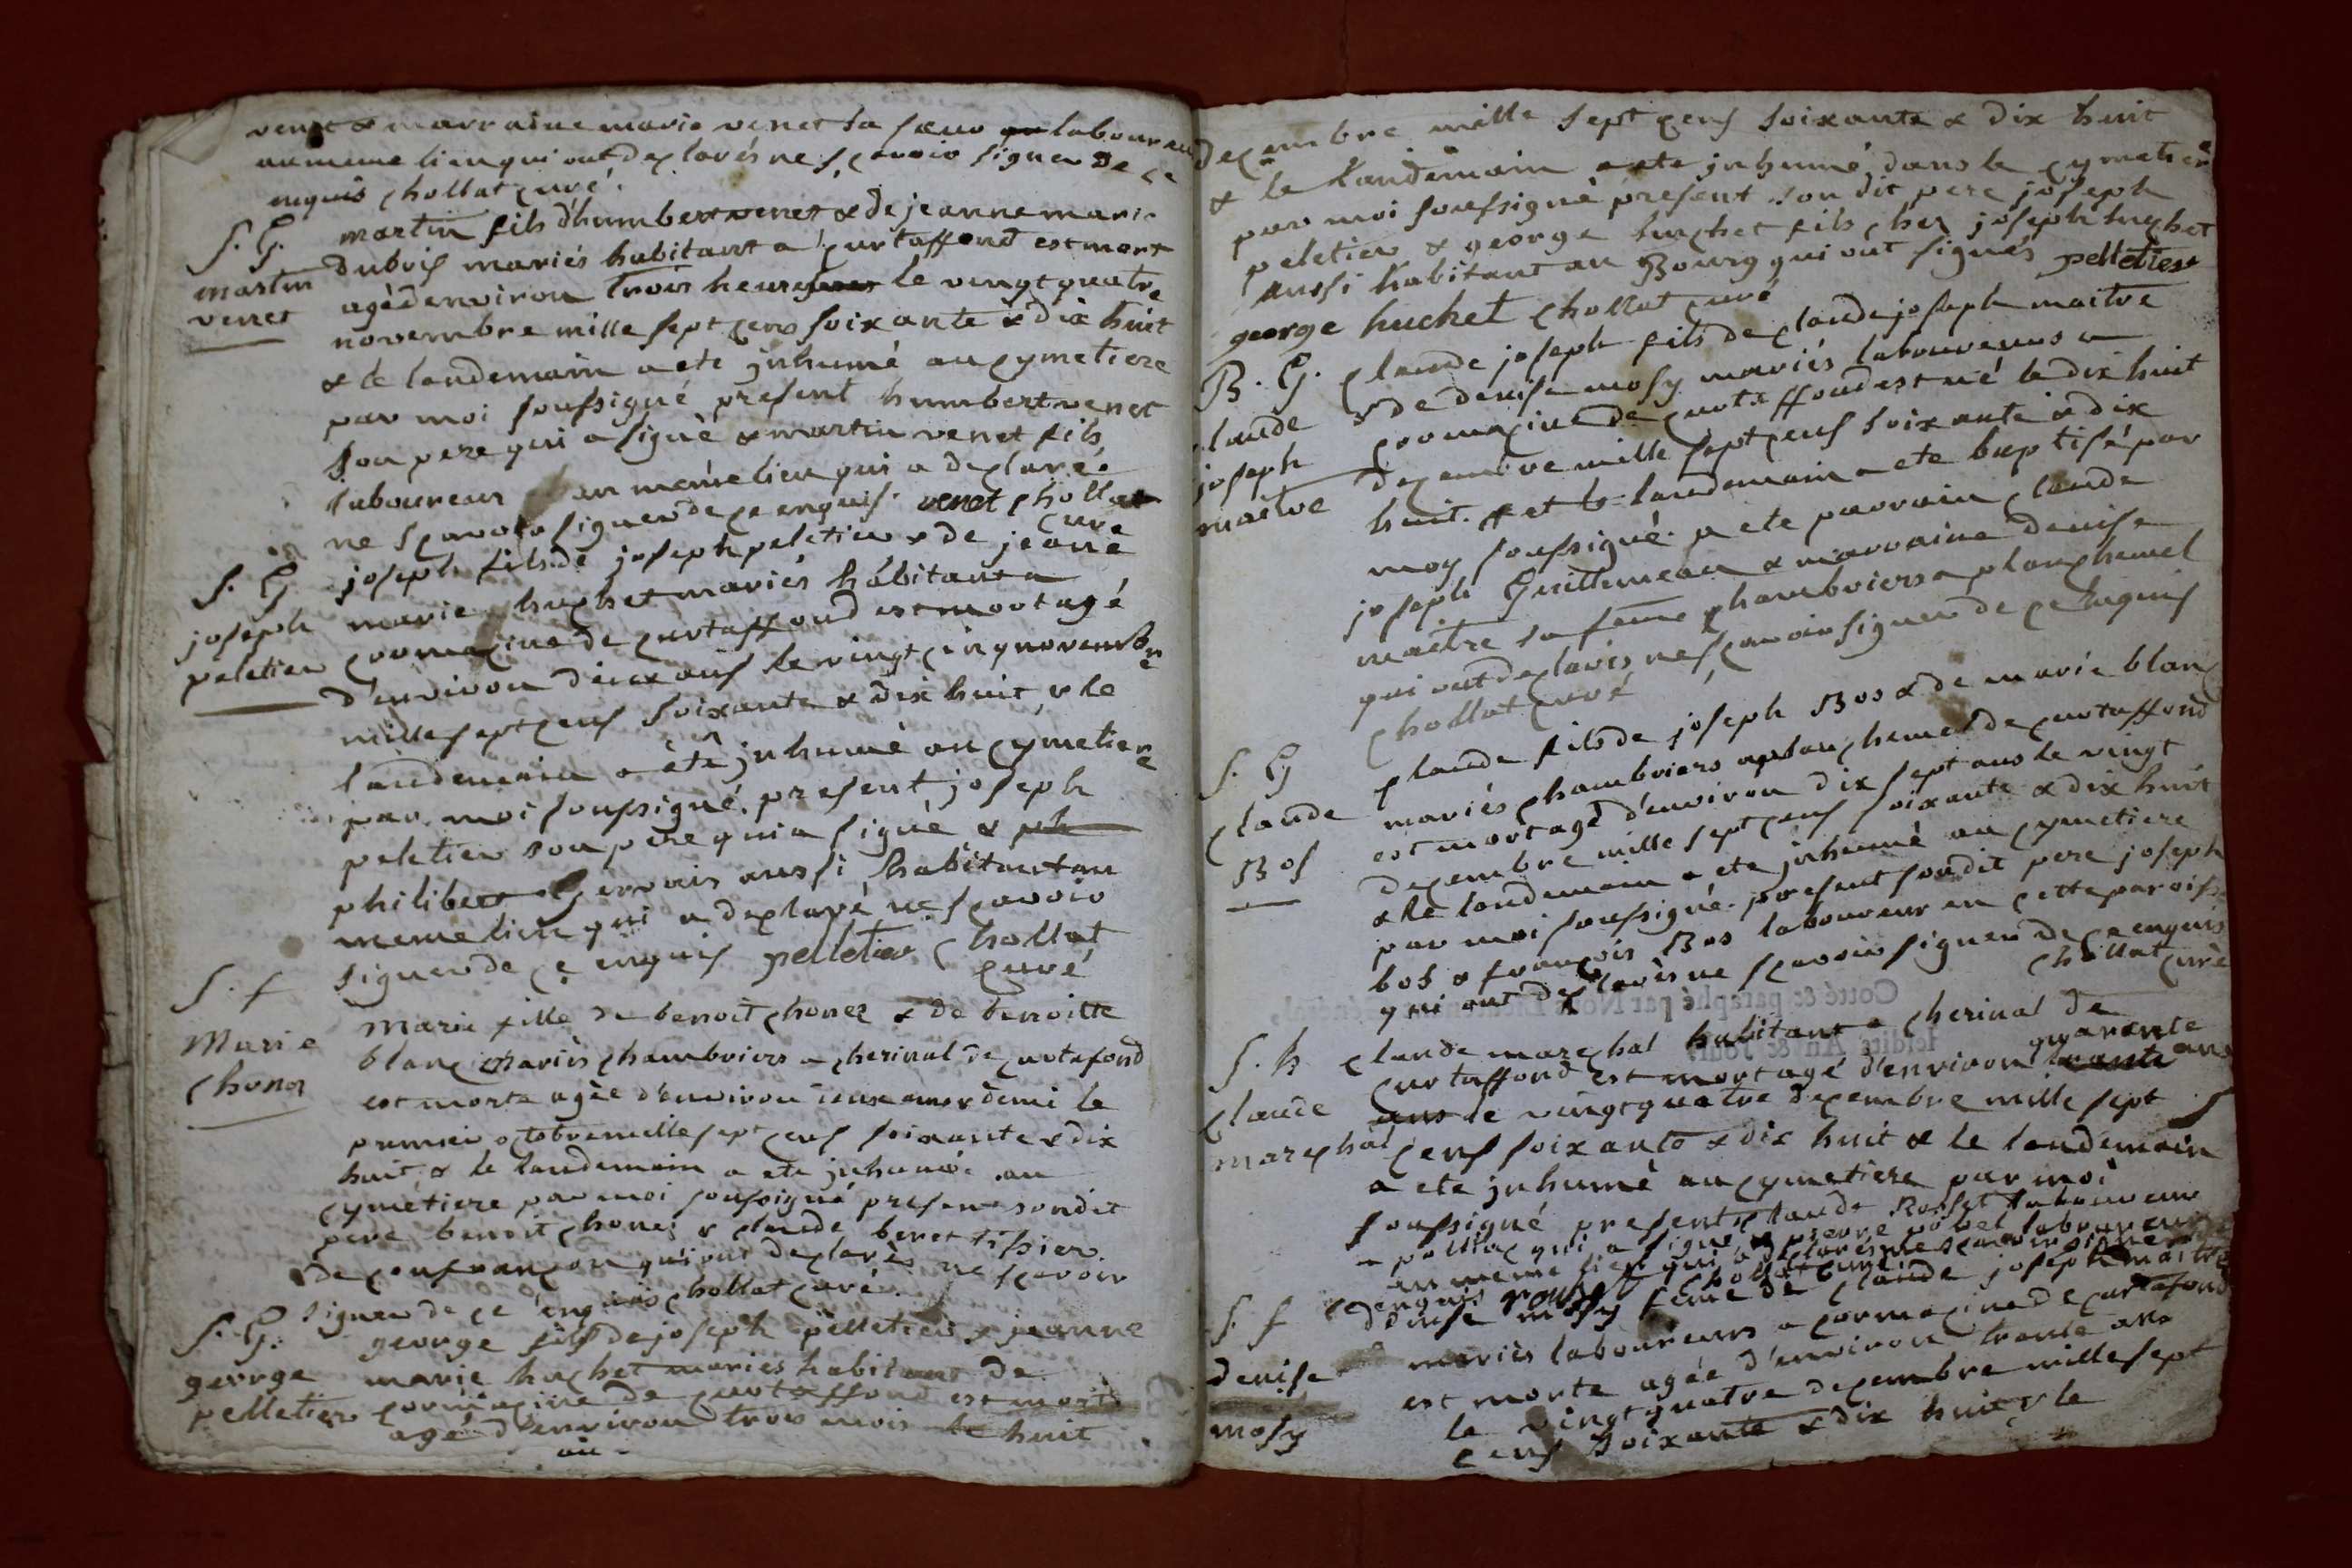 venet & marraine marie venet sa sœur laboureur
au même lieu qui ont declarés ne sçavoir signer de ce
enquis chollat curé.
S. G. martin fils d'humbert venet & de jeanne marie
martin venet
dubois mariés habitant a curtaffond est mort
agé d'environ trois heures le vingt quatre
novembre mille sept cens soixante & dix huit
& le landemain a ete inhumé au cymetiere
par moi soussigné present humbert venet
son pere qui a signé & martin venet fils
laboureur au même lieu qui a declaré
ne sçavoir signer de ce enquis. venet chollat
curé
S. G. joseph fils de joseph peletier & de jeane
joseph peletier
marie huchet mariés habitant a
cormacine de curtaffond est mort agé
d'environ deux ans le vingt cinq novembre
mille sept cens soixante & dix huit & le
landemain a été inhumé au cymetiere
par moi soussigné. present joseph
peletier son pere qui a signé & ph
philibert Gervais aussi habitant au
meme lieu qui a declaré ne sçavoir
signer de ce enquis pelletier chollat
curé
S. f marie fille de benoit chonez & de benoitte
Marie chonez
blanc mariés chambriers a cherinal de curtafond
est morte agée d'environ deux ans & demi le
premier octobre mille sept cens soixante & dix
huit & le landemain a ete inhumée au
cymetiere par moi soussigné present sondit
pere benoit chonez & claude benet tissier
de confrançon qui ont declarés ne sçavoir
signer de ce enquis chollat curé.
S. G. george fils de joseph pelletier & jeanne
george pelletier
marie huchet mariés habitant de
cormacine de curtaffond est mort
agé d'environ trois mois le huit
decembre mille sept cens soixante & dix huit
& le landemain a ete inhumé dans le cymetiere
par moi soussigné present son dit pere joseph
peletier & george huchet fils chez joseph huchet
aussi habitant au Bourg qui ont signés pelletier
george huchet chollat curé
B. G. claude joseph fils de claude joseph maitre
claude joseph maitre
& de denise mosy mariés laboureurs a
cormacine de curtaffond est né le dix huit
decembre mille sept cens soixante & dix
huit. et le landemain a ete baptisé par
moy soussigné. a ete parrain claude
joseph Guillemeau & marraine denise
maitre sa feme chambriers a planchemel
qui ont declarés ne sçavoir signer de ce enquis
chollat curé
S. G claude fils de joseph Bos & de marie blanc
claude Bos
mariés chambriers a planchemel de curtaffond
est mort agé d'environ dix sept ans le vingt
decembre mille sept cens soixante & dix huit
& le landemain a ete inhumé au cymetiere
par moi soussigné. present sondit pere joseph
bos & françois Bos laboureur en cette paroisse
qui ont declarés ne sçavoir signer de ce enquis
chollat curé
S. h claude marechal habitant a cherinal de
claude marechal
curtaffond est mort agé d'environ quarante ans
ans le vingt quatre decembre mille sept
cens soixante & dix huit & le landemain
a ete inhumé au cymetiere par moi
soussigné present claude Rosset laboureur
a qui a signé & pierre laboureur
au meme lieu qui a declaré ne sçavoir signer
de enquis rousset chollat curé
S. f denise mosy feme de claude joseph maitre
denise mosy
mariés laboureurs a cormacine de curtafond
est morte agée d'environ trente ans
le vingt quatre decembre mille sept
cens soixante & dix huit & le